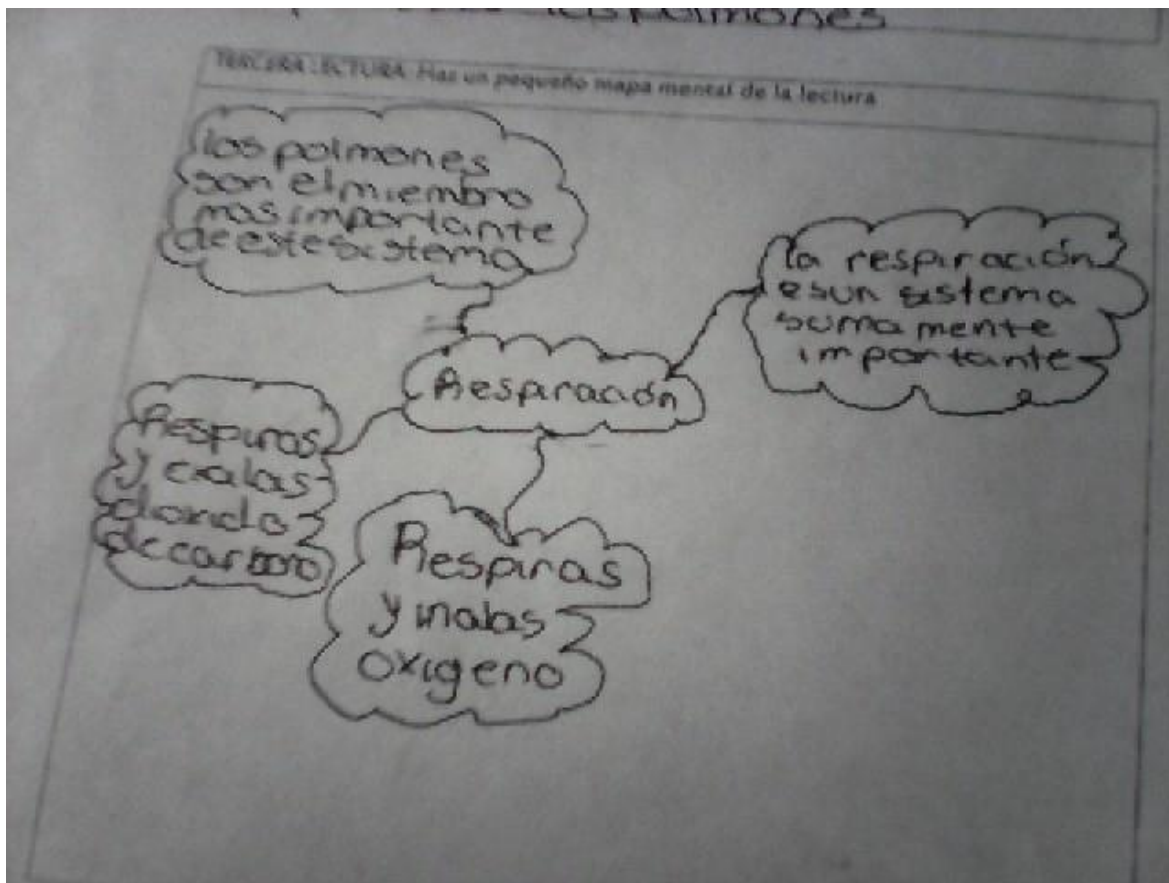 los polmones
TERCERA LECTURA: Has un pequeño mapa mental de la lectura
los polmones
son el miembro
mas importante
de este sistema
la respiración
es un sistema
suma mente
importante
Respiración
Respiras
y exalas
dioxido
de carbono
Respiras
y inalas
oxigeno